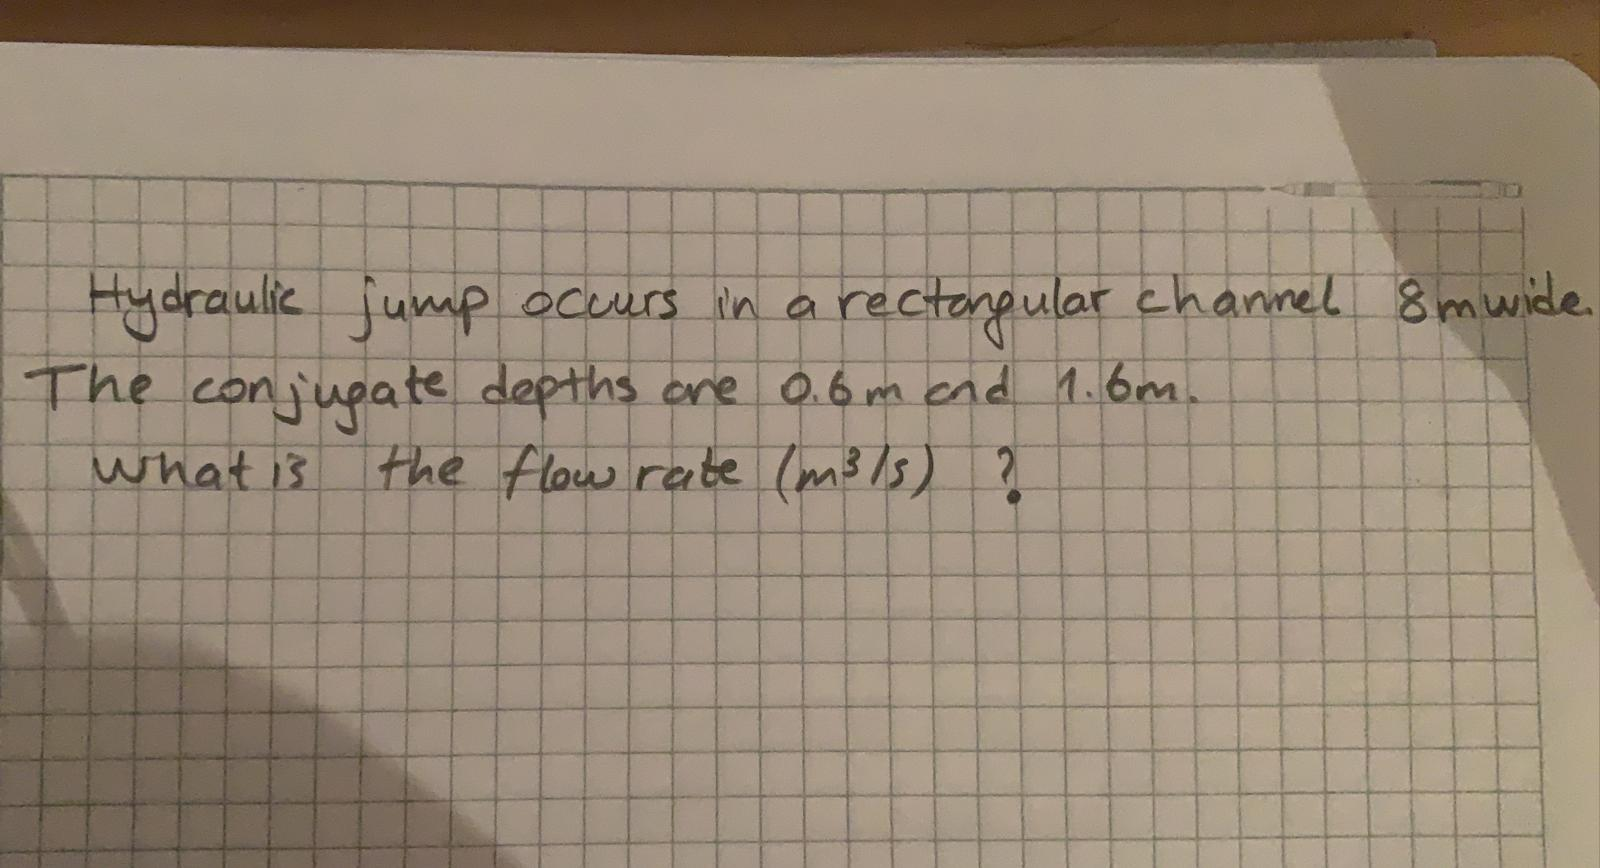 Hydraulic jump occurs in a rectangular channel 8m wide.
The conjugate depths are 0.6m and 1.6m.
What is the flow rate (m³/s) ?